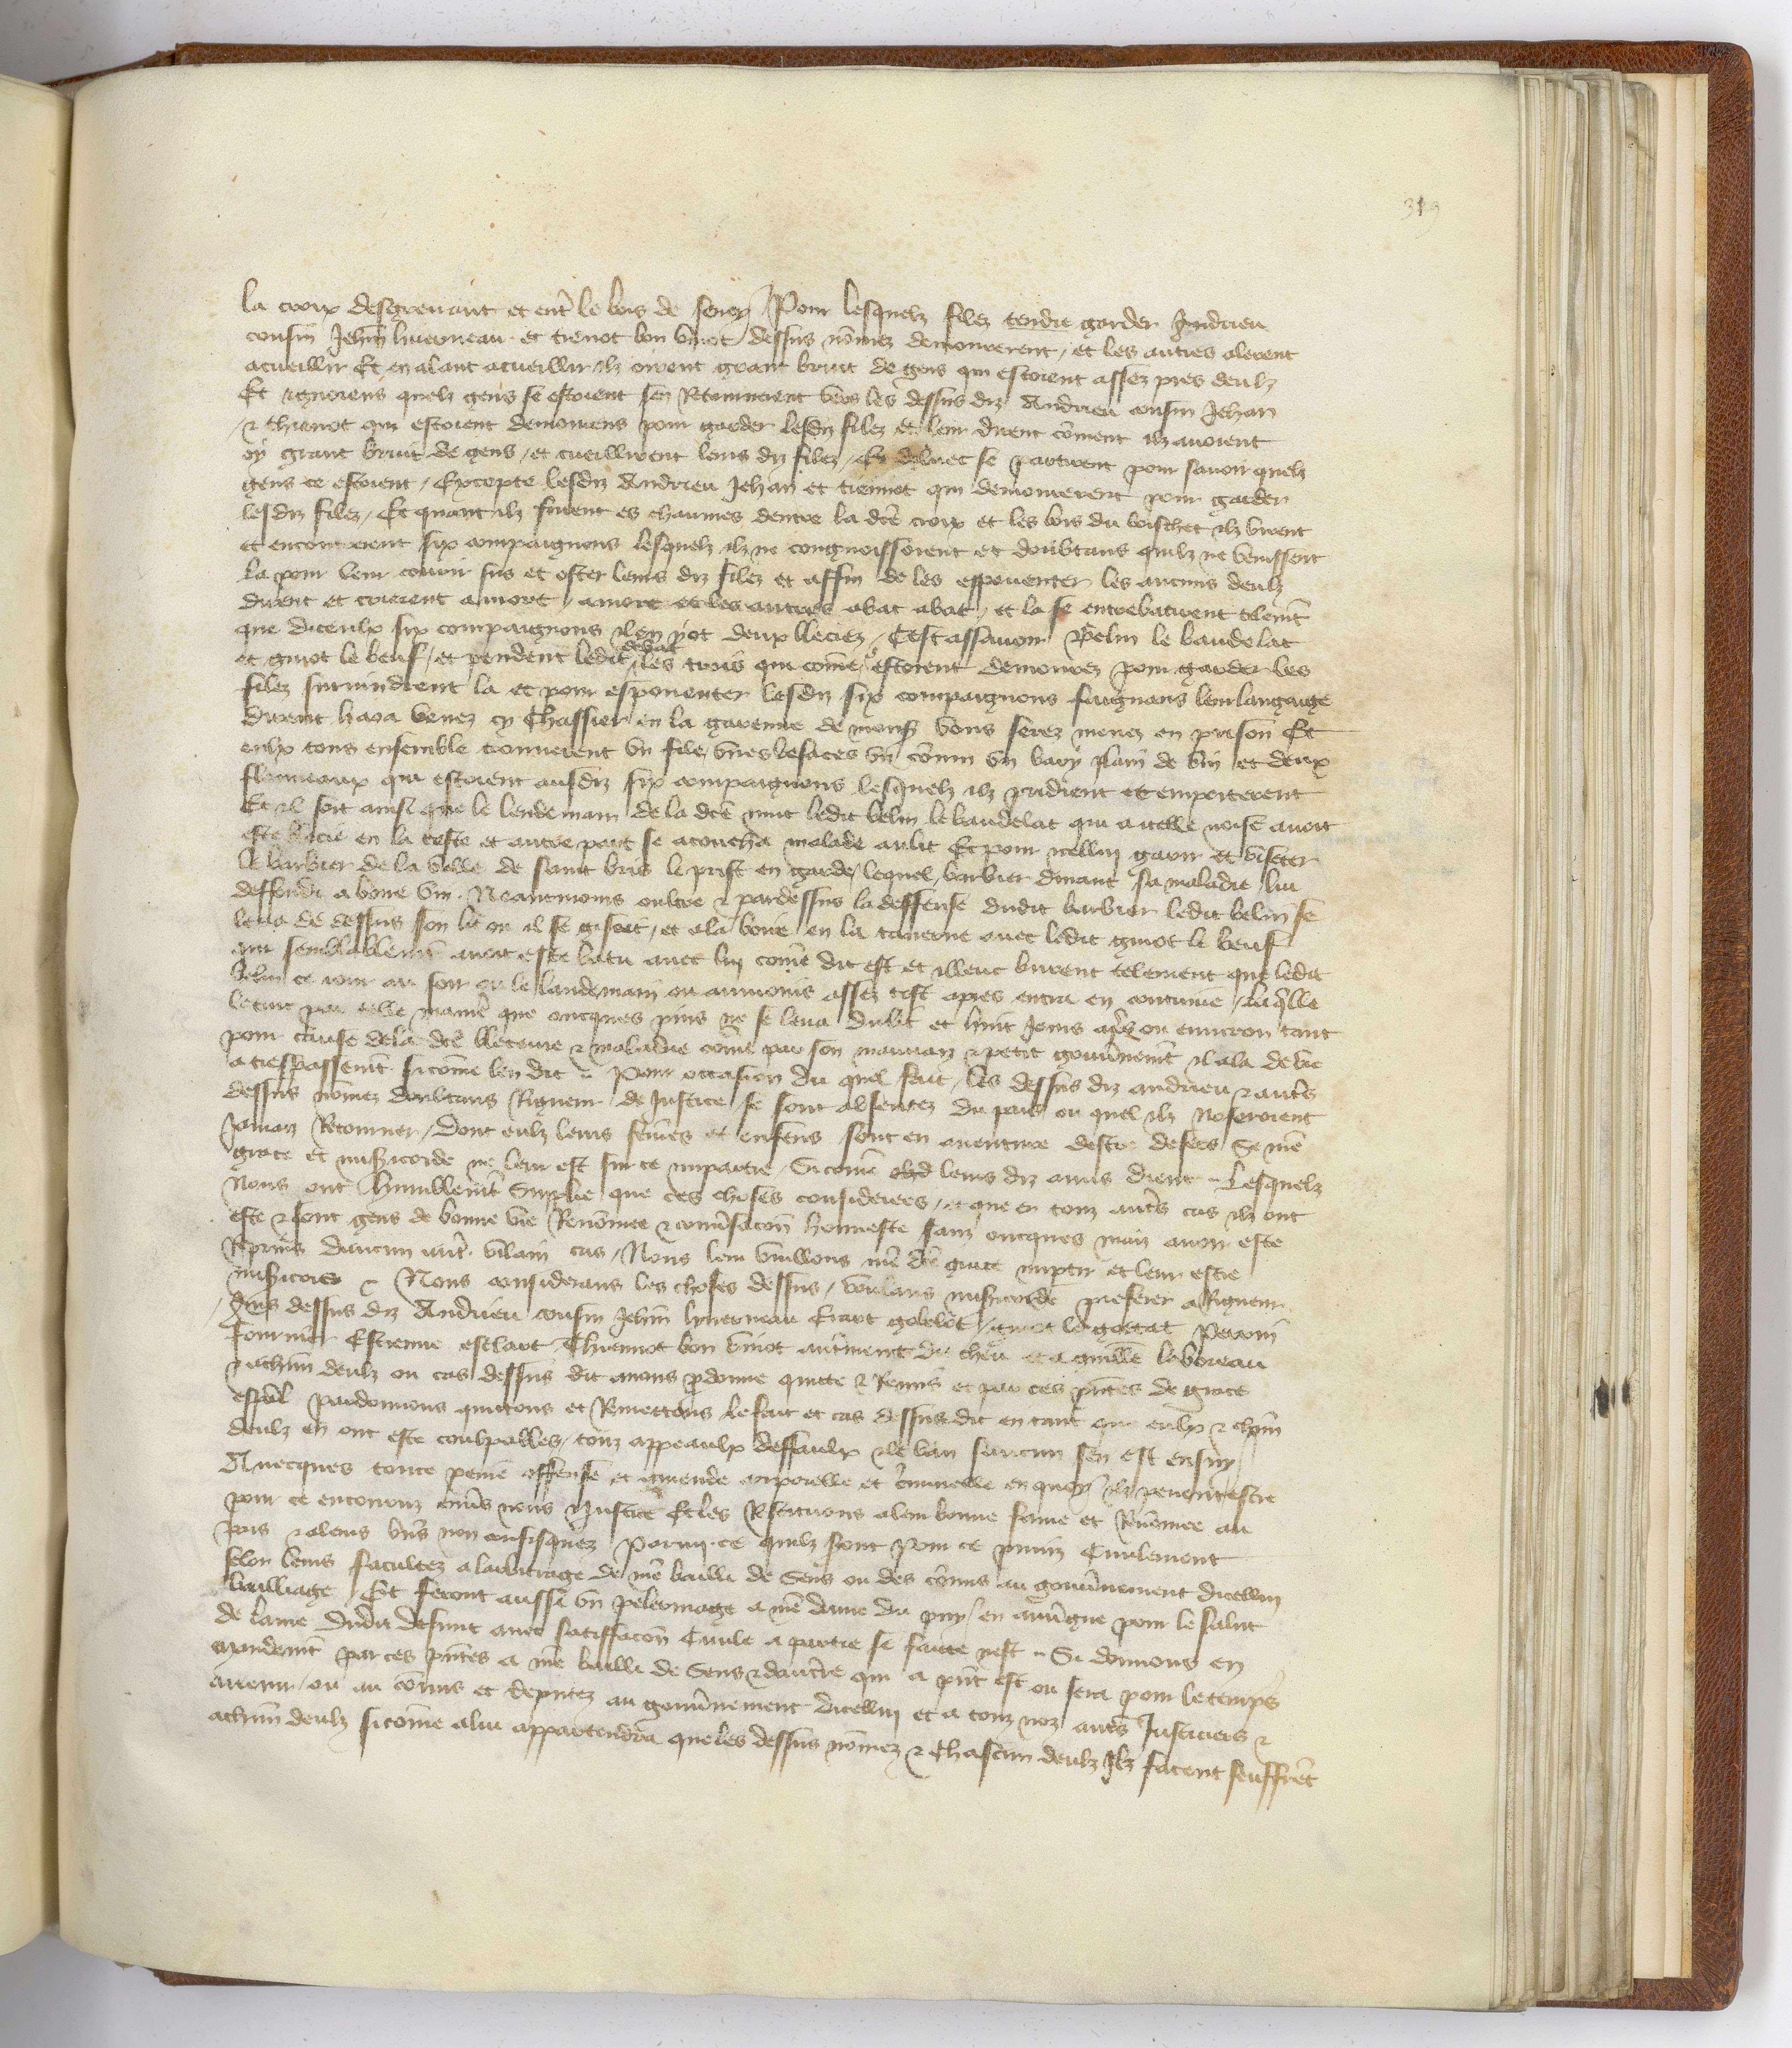 319
la croix desgrenant et entre le bois de Senoy Pour lesquelz filez tendre garder Andrieu
cousin Jehan huerneau et tienot bon vinot dessus nommez demourerent / et les autres alerent
acueillir Et en alant acueillir ilz oirent grant bruit de gens qui estoient assez pres deulz
Et ignorens quelz gens se estoient sen Retournerent vers les dessus diz Andrieu cousin Jehan
& thienot qui estoient demourens pour garder lesdiz filez et leur dirent comment ilz avoient
oy grant bruit de gens / et cueillirent leurs diz filez / Et dilluec se partirent pour savoir quelz
gens ce estoient / Excepte lesdiz Andrieu Jehan et tiennot qui demourerent pour garder
lesdiz filez / Et quant ilz furent es chaumes dentre la dicte croix et les bois du boischet ilz virent
et encontrerent six compaignons lesquelz ilz ne congnoissoient et doubtans quilz ne venissent
la pour leur courir sus et oster leurs diz filez et affin de les espouenter les aucuns deulz
dirent et crierent a mort / a mort et les autres abat abat / et la se entrebatirent telement
que diceulx six compaignons il en y ot deux bleciez / Cest assavoir Belin le baudelat
et guiot le beuf / et pendent ledit debat les trois qui comme estoient demourez pour garder les
filez survindrent la et pour espouenter lesdiz six compaignons faignans leur langaige
dirent haa venez cy Chassier en la garenne de mons vous serez menez en prison Et
eulx tous ensemble trouverent un file unes besaces un cornu un bary plain de vin et deux
flouneaux qui estoient ausdiz six compaignons lesquelz ilz pridrent et emporterent
Et il soit ainsi que le lendemain de la dicte nuit ledit belin le baudelat qui a icelle noise avoit
este blecie en la teste et autre part se acoucha malade au lit Et pour icellui garir et visiter
le barbier de la ville de saint bris le prist en garde / lequel barbier durant sa maladie lui
deffendi a boire vin Neantmoins oultre & pardessus la deffense dudit barbier ledit belin se
leva de dessus son lit ou il se gisoit / et ala boire en la taverne avec ledit guiot le beuf
qui semblablement avoit este batu avec lui comme dit est et illeuc burent telement que ledit
belin ce jour au soir ou le landemain ou aumoins assez tost apres entra en continue / laquelle
le tint par telle maniere que oncques puis ne se leva du lit et huit jours apres ou environ tant
pour cause de la dicte bleceure & maladie comme par son mauvaiz & petit gouvernement il ala de vie
a trespassement si comme len dit Pour occasion du quel fait / les dessus diz andrieu & autres
dessus nommez doubtans Rigueur de Justice / se sont absentez du pais ou quel ilz noseroient
Jamaiz Retourner / dont eulz leurs femmes et enfens sont en aventure destre desers Se nostre
grace et misericorde ne leur est sur ce impartie Si comme leurs diz amis dient Lesquelz
nous ont humblement Supplie que ces choses considerees / et que en touz autres cas ilz ont
este & sont gens de bonne vie Renommee & conversacion honneste sanz oncques maiz avoir este
Reprins daucun autre vilain cas / Nous leur vueillons nostre dicte grace impartir et leur estre
misericors & Nous considerans les choses dessus / voulans misericorde preferer a Rigueur
Aus dessus diz Andrieu cousin Jehan huerneau Evrart golelot / guiot le goetat Perrin
fournier Estienne esclart Thiennot bon vinot autrement du chen et a guillaume leboreau
& achun deulz ou cas dessus dit avons pardonne quitte & Remis et par ces presentes de grace
especial Pardonnons quitons et Remettons le fait et cas dessus dit en tant que eulx & chascun
deulz en ont este coulpables / touz appeaulx deffaulx & le ban saucun sen est ensuy
Avecques toute peine offense et amende corporelle et criminelle en quoy ilz pevent estre
pour ce encouruz envers nous & Justice Et les Restituons a leur bonne fame et Renommee au
pais & a leurs biens non confisquez Parmi ce quilz seront pour ce puniz Civilement
selon leurs facultez a larbitrage de nostre bailli de Sens ou des commis au gouvernement dicellui
bailliage Et feront aussi un pelerinage a nostre dame du puy / en auvergne pour le salut
de lame dudit defunt avec satisfacion Civile a partie se faicte nest Si donnons en
mandement par ces presentes a nostre bailli de Sens & daucerre qui a present est ou sera pour le temps
avenir / ou au commis et deputez au gouvernement dicellui et a touz noz autres Justiciers &
achun deulz si comme a lui appartendra que les dessus nommez & chascun deulz Ilz facent seuffrent